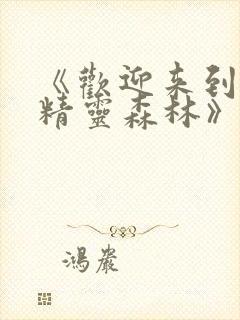 《歡迎来到
精靈森林》
鴻嚴